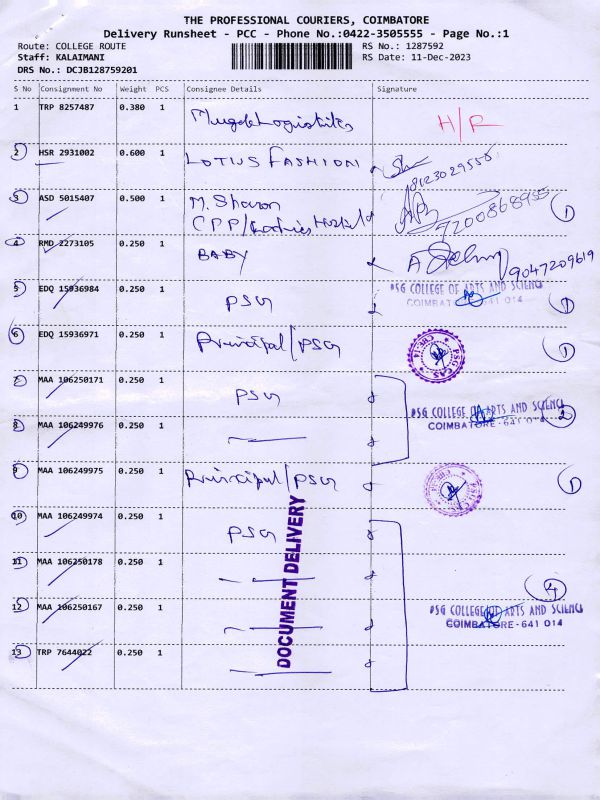 THE PROFESSIONAL COURIERS, COIMBATORE
Delivery Runsheet - PCC - Phone No.:0422-3505555 - Page No.:1
Route: COLLEGE ROUTE
RS No.: 1287592
Staff: KALAIMANI
RS Date: 11-Dec-2023
DRS No.: DCJB128759201
S No Consignment No Weight PCS Consignee Details Signature
1 TRP 8257487 0.380 1 H/R
2 HSR 2931002 0.600 1 LOTUS FASHION
8123029555
3 ASD 5015407 0.500 1 M. Sharon
CPP/ Hostel 7200868955 1
4 RMD 2273105 0.250 1 BABY 9047209619
5 EDQ 15936984 0.250 1 PSG PSG COLLEGE OF ARTS AND SCIENCE
COIMBATORE-641 014 1
6 EDQ 15936971 0.250 1 Principal/PSG PSG CAS CBE-14 1
7 MAA 106250171 0.250 1 PSG
PSG COLLEGE OF ARTS AND SCIENCE
8 MAA 106249976 0.250 1 COIMBATORE-641 014 2
9 MAA 106249975 0.250 1 Principal/PSG 1
10 MAA 106249974 0.250 1 PSG
11 MAA 106250178 0.250 1 4
12 MAA 106250167 0.250 1 PSG COLLEGE OF ARTS AND SCIENCE
COIMBATORE-641 014
13 TRP 7644022 0.250 1
DOCUMENT DELIVERY